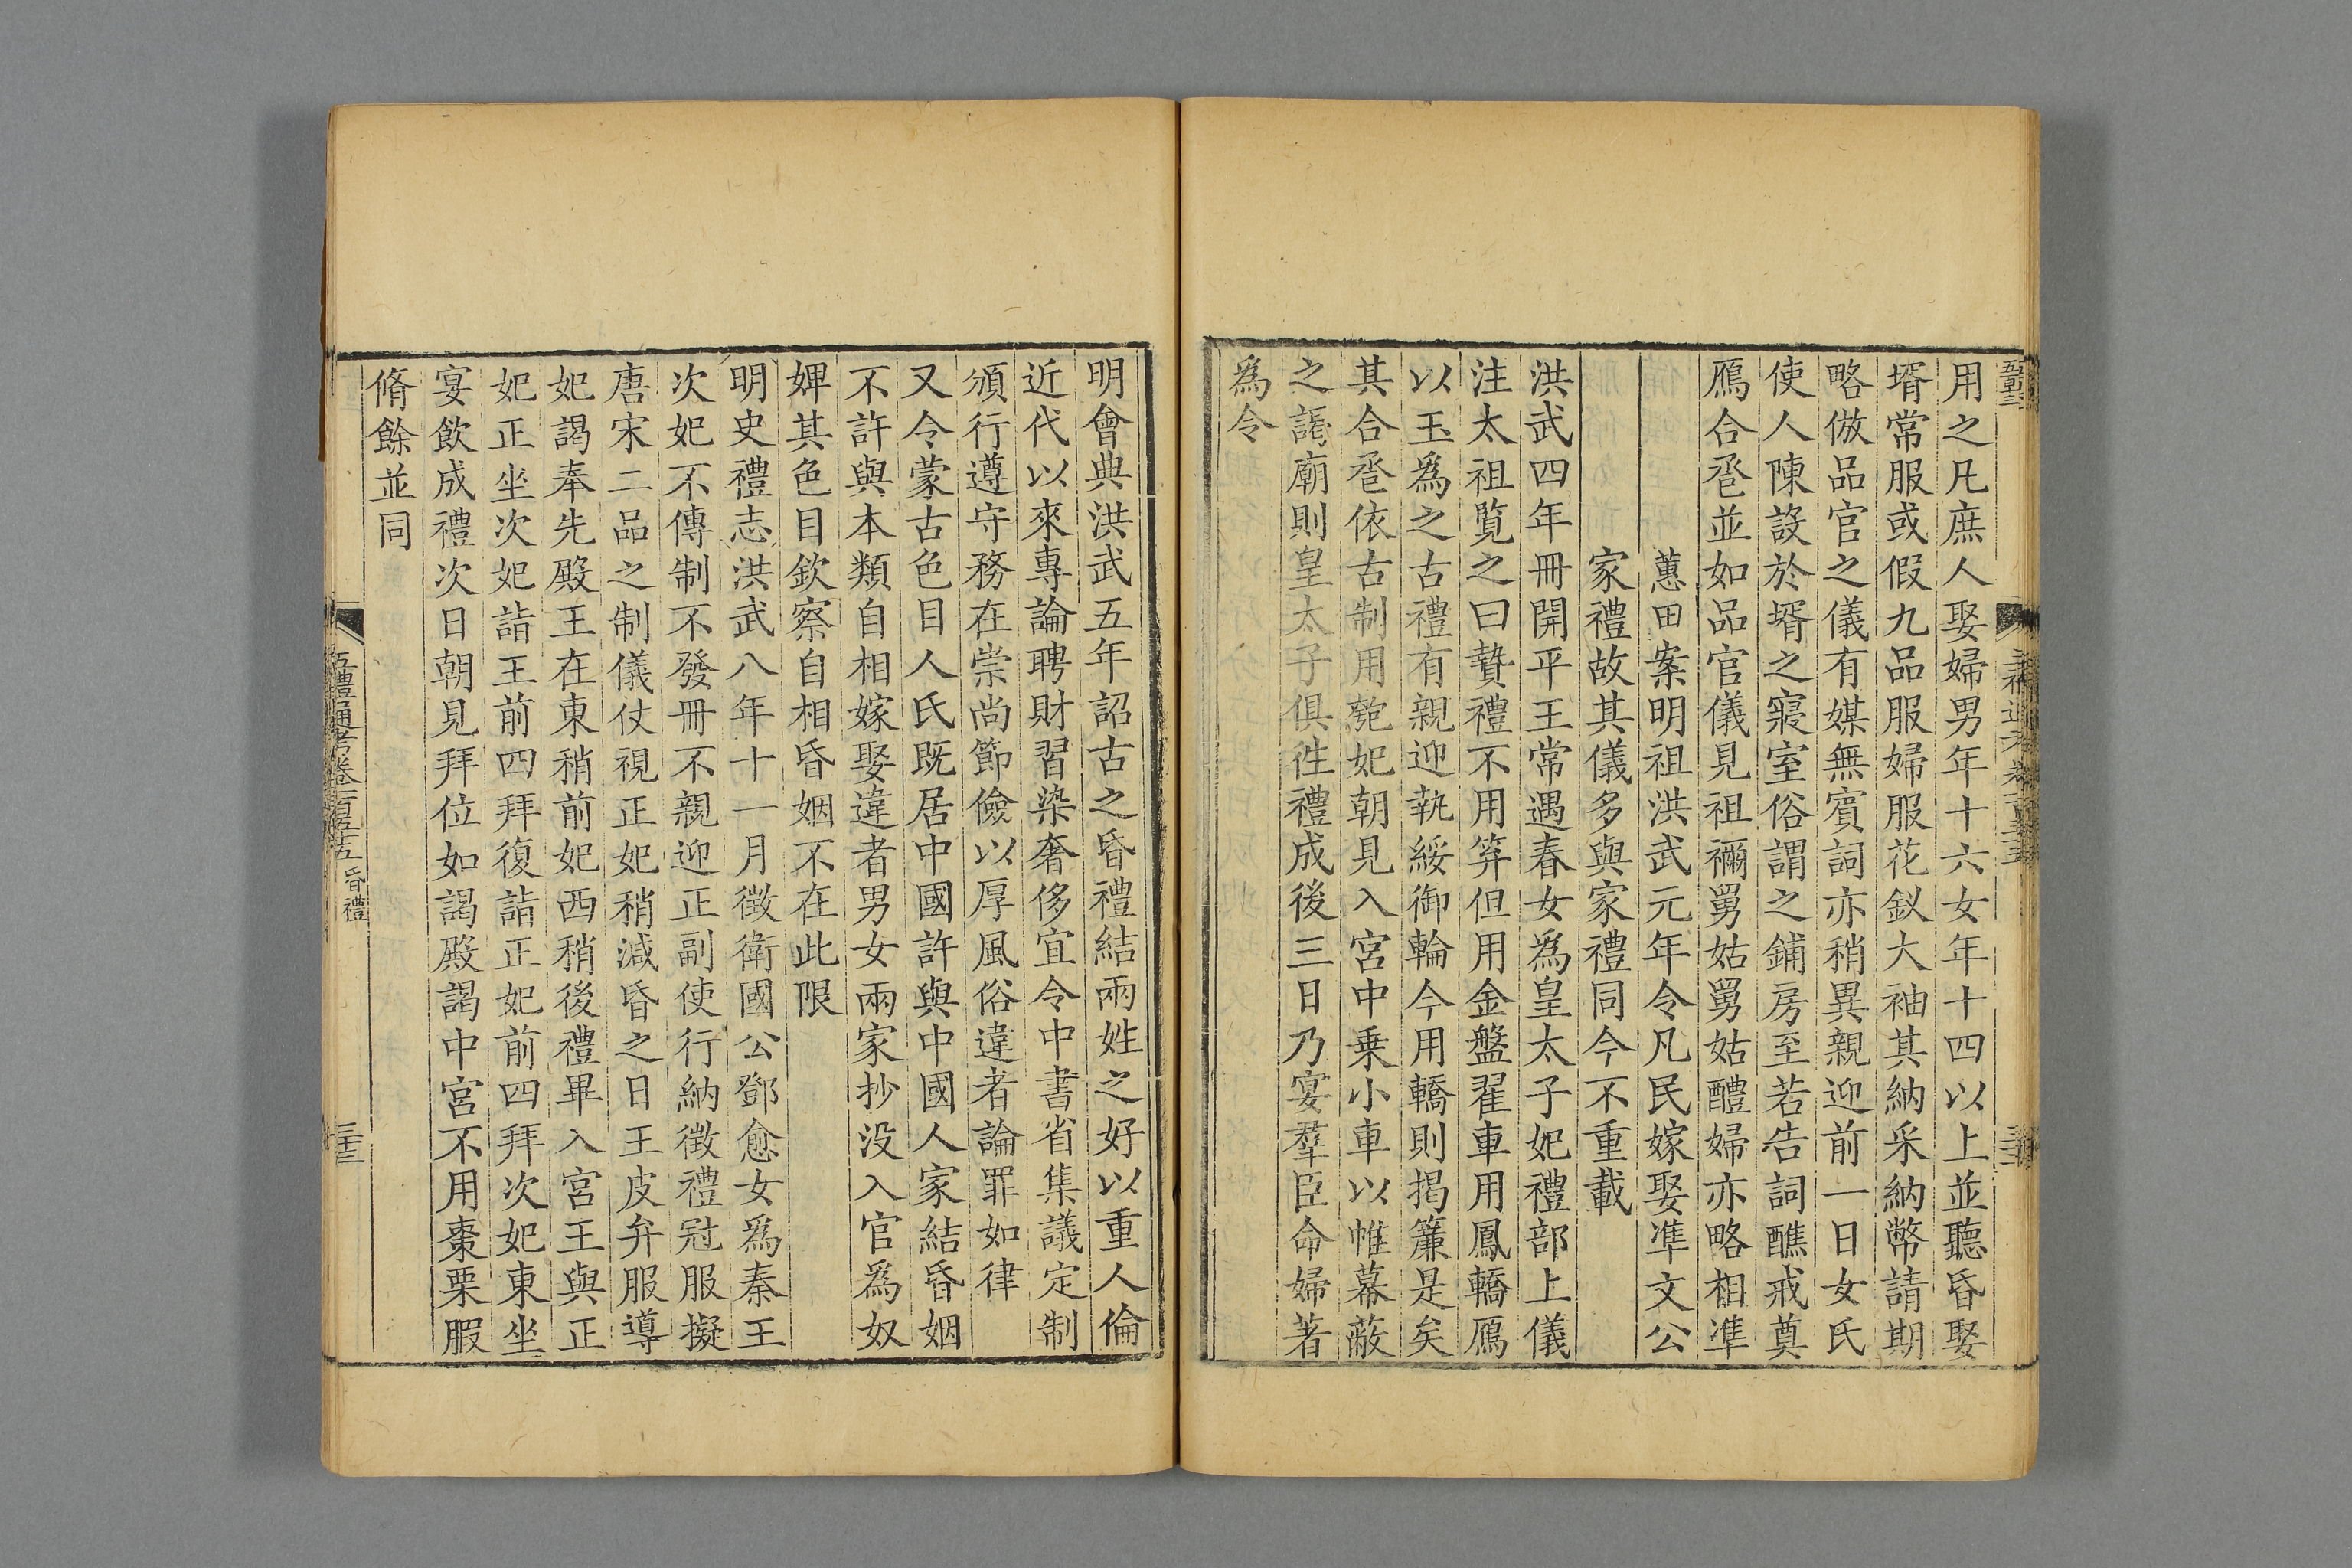 用之凡庶人娶婦男年十六女年十四以上並聽昏娶
壻常服或假九品服婦服花釵大袖其納采納幣請期
略倣品官之儀有媒無賓詞亦稍異親迎前一日女氏
使人陳設於壻之寢室俗謂之鋪房至若告詞醮戒奠
鴈合卺並如品官儀見祖禰舅姑舅姑醴婦亦略相準
蕙田案明祖洪武元年令凡民嫁娶準文公
家禮故其儀多與家禮同今不重載
洪武四年冊開平王常遇春女爲皇太子妃禮部上儀
注太祖覽之曰贄禮不用笲但用金盤翟車用鳳轎鴈
以玉爲之古禮有親迎執綏御輪今用轎則揭簾是矣
其合卺依古制用匏妃朝見入宮中乗小車以帷幕蔽
之謁廟則皇太子俱徃禮成後三日乃宴羣臣命婦著
爲令
明會典洪武五年詔古之昏禮結兩姓之好以重人倫
近代以來專論聘財習染奢侈宜令中書省集議定制
頒行遵守務在崇尚節儉以厚風俗違者論罪如律
又令蒙古色目人氏既居中國許與中國人家結昏姻
不許與本類自相嫁娶違者男女兩家抄没入官爲奴
婢其色目欽察自相昏姻不在此限
明史禮志洪武八年十一月徵衛國公鄧愈女爲秦王
次妃不傳制不發冊不親迎正副使行納徵禮冠服擬
唐宋二品之制儀仗視正妃稍減昏之日王皮弁服導
妃謁奉先殿王在東稍前妃西稍後禮畢入宮王與正
妃正坐次妃詣王前四拜復詣正妃前四拜次妃東坐
宴飲成禮次日朝見拜位如謁殿謁中宮不用棗栗腶
脩餘並同
五禮通考卷一百五十五 昏禮
三十三